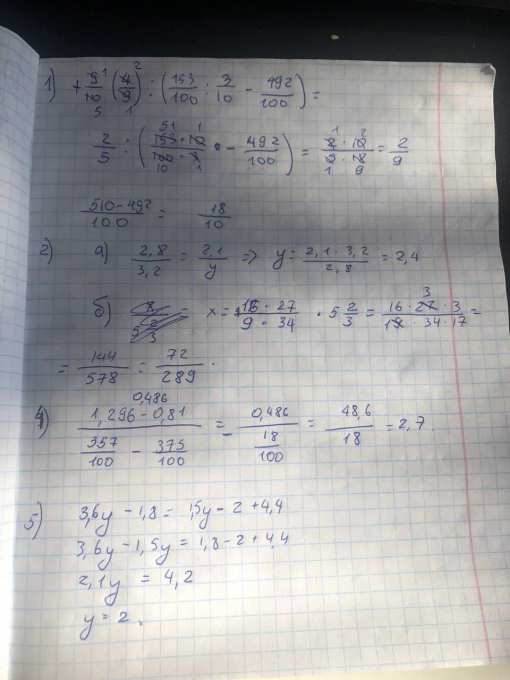 1) 9/10 · (4/9) : (153/100 : 3/10 - 492/100) =
2/5 : (153 · 10 / 100 · 3 - 492/100) = 2 · 10 / 5 · 18 = 2/9
510-492/100 = 18/10
2) а) 2,8/3,2 = 2,1/y => y = 2,1 · 3,2 / 2,8 = 2,4
б) x = 16 · 27 / 9 · 34 · 5 2/3 = 16 · 27 · 3 / 34 · 17 =
= 144/578 = 72/289 .
4) 0,486
1,296 - 0,81 / 357/100 - 375/100 = 0,486 / - 18/100 = 48,6/18 = 2,7
5) 3,6y - 1,8 = 1,5y - 2 + 4,4
3,6y - 1,5y = 1,8 - 2 + 4,4
2,1y = 4,2
y = 2 .